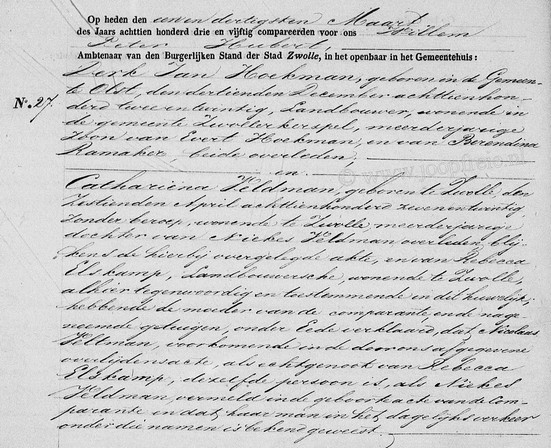 Op heden den een en dertigsten Maart
des Jaars achttien honderd drie en vijftig compareerden voor ons Willem
Peter Hubert,
Ambtenaar van den Burgerlijken Stand der Stad Zwolle, in het openbaar in het Gemeentehuis:
Nº. 27.
Derk Jan Hoekman, geboren in de Gemeen-
te Olst, den dertienden December achttienhon-
derd twee en twintig, Landbouwer, wonende in
de gemeente Zwollerkerspel, meerderjarige
Zoon van Evert Hoekman, en van Berendina
Ramaker, beide overleden,
en
Catharina Veldman, geboren te Zwolle, den
Zestienden April achttienhonderd zevenentwintig,
Zonder beroep, wonende te Zwolle, meerderjarige
dochter van Niekes Veldman overleden, blij-
kens de hierbij overgelegde akte, en van Rebecca
Elskamp, Landbouwersche, wonende te Zwolle,
alhier tegenwoordig en toestemmende in dit huwelijk,
hebbende de moeder van de comparante en de nage-
noemde getuigen, onder Eede verklaard, dat Nicolaas
Veltman, voorkomende in de doorons afgegevene
overlijdensacte, als echtgenoot van Rebecca
Elskamp, dezelfde persoon is, als Niekes
Veldman, vermeld in de geboorteacte van de Com-
parante en dat, haar man in het dagelijksch verkeer
onder die namen is bekend geweest.